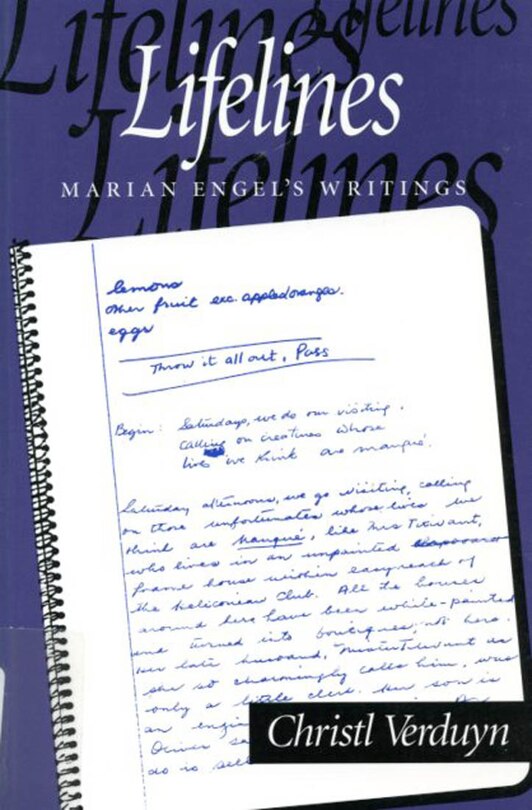 Lifelines
Lifelines
Lifelines
Lifelines
MARIAN ENGEL'S WRITINGS
lemons
other fruit exc. apples/oranges.
eggs
Throw it all out, Pass
Begin: Saturdays, we do our visiting,
calling on creatures whose
lives we think are manqué.
Saturday afternoons, we go visiting, calling
on those unfortunates whose lives we
think are manqué, like Mrs
who lives in an unpainted
frame house within easy reach of
the Heliconian Club. All the houses
around hers have been white-painted
and turned into boutiques, not hers.
Her late husband, as
she so charmingly calls him, was
only a little clerk. Her son is
an
Oliver
do is
Christl Verduyn